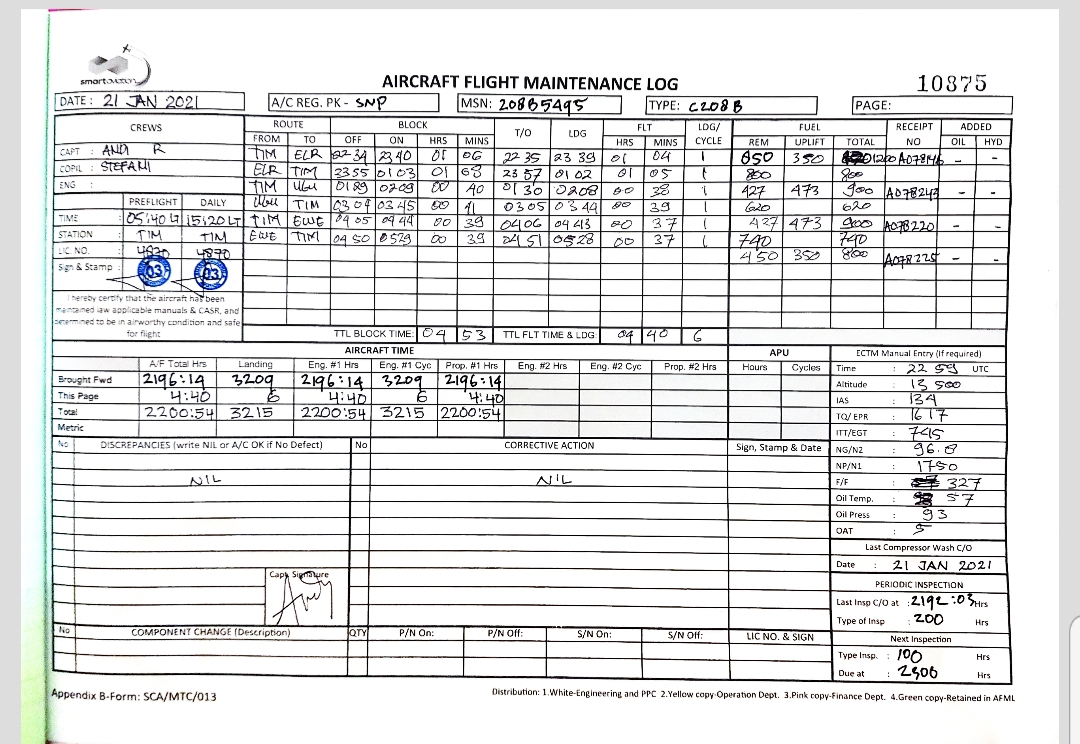 smart aviation
AIRCRAFT FLIGHT MAINTENANCE LOG
10875
DATE : 21 JAN 2021
A/C REG. PK - SNP
MSN: 208B5495
TYPE: C208B
PAGE:
CREWS ROUTE BLOCK T/O LDG FLT LDG/CYCLE FUEL RECEIPT NO ADDED
FROM TO OFF ON HRS MINS HRS MINS REM UPLIFT TOTAL OIL HYD
CAPT : ANDI R TIM ELR 2234 2340 01 06 2235 2339 01 04 1 850 350 1200 A07846 - -
COPIL : STEFANI ELR TIM 2355 0103 01 2357 0102 01 05 1 800 800
ENG : TIM UBU 0209 00 40 0130 0208 00 38 1 427 473 900 A078243 - -
UBU TIM 0304 0345 00 41 0305 0344 00 39 1 620 620
PREFLIGHT DAILY
TIME : 05:40 LT 15:20 LT TIM EWE 0405 0944 00 39 0406 0443 00 37 1 427 473 900 A078220 - -
STATION : TIM TIM EWE TIM 0450 0529 00 39 0451 0528 00 37 1 740 740
LIC. NO. : 4870 4870 450 350 800 A078225 - -
Sign & Stamp : 03 03
I hereby certify that the aircraft has been
maintained iaw applicable manuals & CASR, and
determined to be in airworthy condition and safe
for flight
TTL BLOCK TIME: 04 53 TTL FLT TIME & LDG: 04 40 6
AIRCRAFT TIME APU ECTM Manual Entry (If required)
A/F Total Hrs Landing Eng. #1 Hrs Eng. #1 Cyc Prop. #1 Hrs Eng. #2 Hrs Eng. #2 Cyc Prop. #2 Hrs Hours Cycles Time : 22 59 UTC
Brought Fwd 2196:14 3209 2196:14 3209 2196:14 Altitude : 13 500
This Page 4:40 6 4:40 6 4:40 IAS : 134
Total 2200:54 3215 2200:54 3215 2200:54 TQ/ EPR : 1617
Metric ITT/EGT : 745
No DISCREPANCIES (write NIL or A/C OK if No Defect) No CORRECTIVE ACTION Sign, Stamp & Date NG/N2 : 96.8
NP/N1 : 1750
NIL NIL F/F : 327
Oil Temp. : 57
Oil Press : 93
OAT : 5
Last Compressor Wash C/O
Date : 21 JAN 2021
Capt Signature
PERIODIC INSPECTION
Last Insp C/O at : 2192:03 Hrs
Type of Insp : 200 Hrs
No COMPONENT CHANGE (Description) QTY P/N On: P/N Off: S/N On: S/N Off: LIC NO. & SIGN Next Inspection
Type Insp. : 100 Hrs
Due at : 2300 Hrs
Appendix B-Form: SCA/MTC/013
Distribution: 1.White-Engineering and PPC 2.Yellow copy-Operation Dept. 3.Pink copy-Finance Dept. 4.Green copy-Retained in AFML